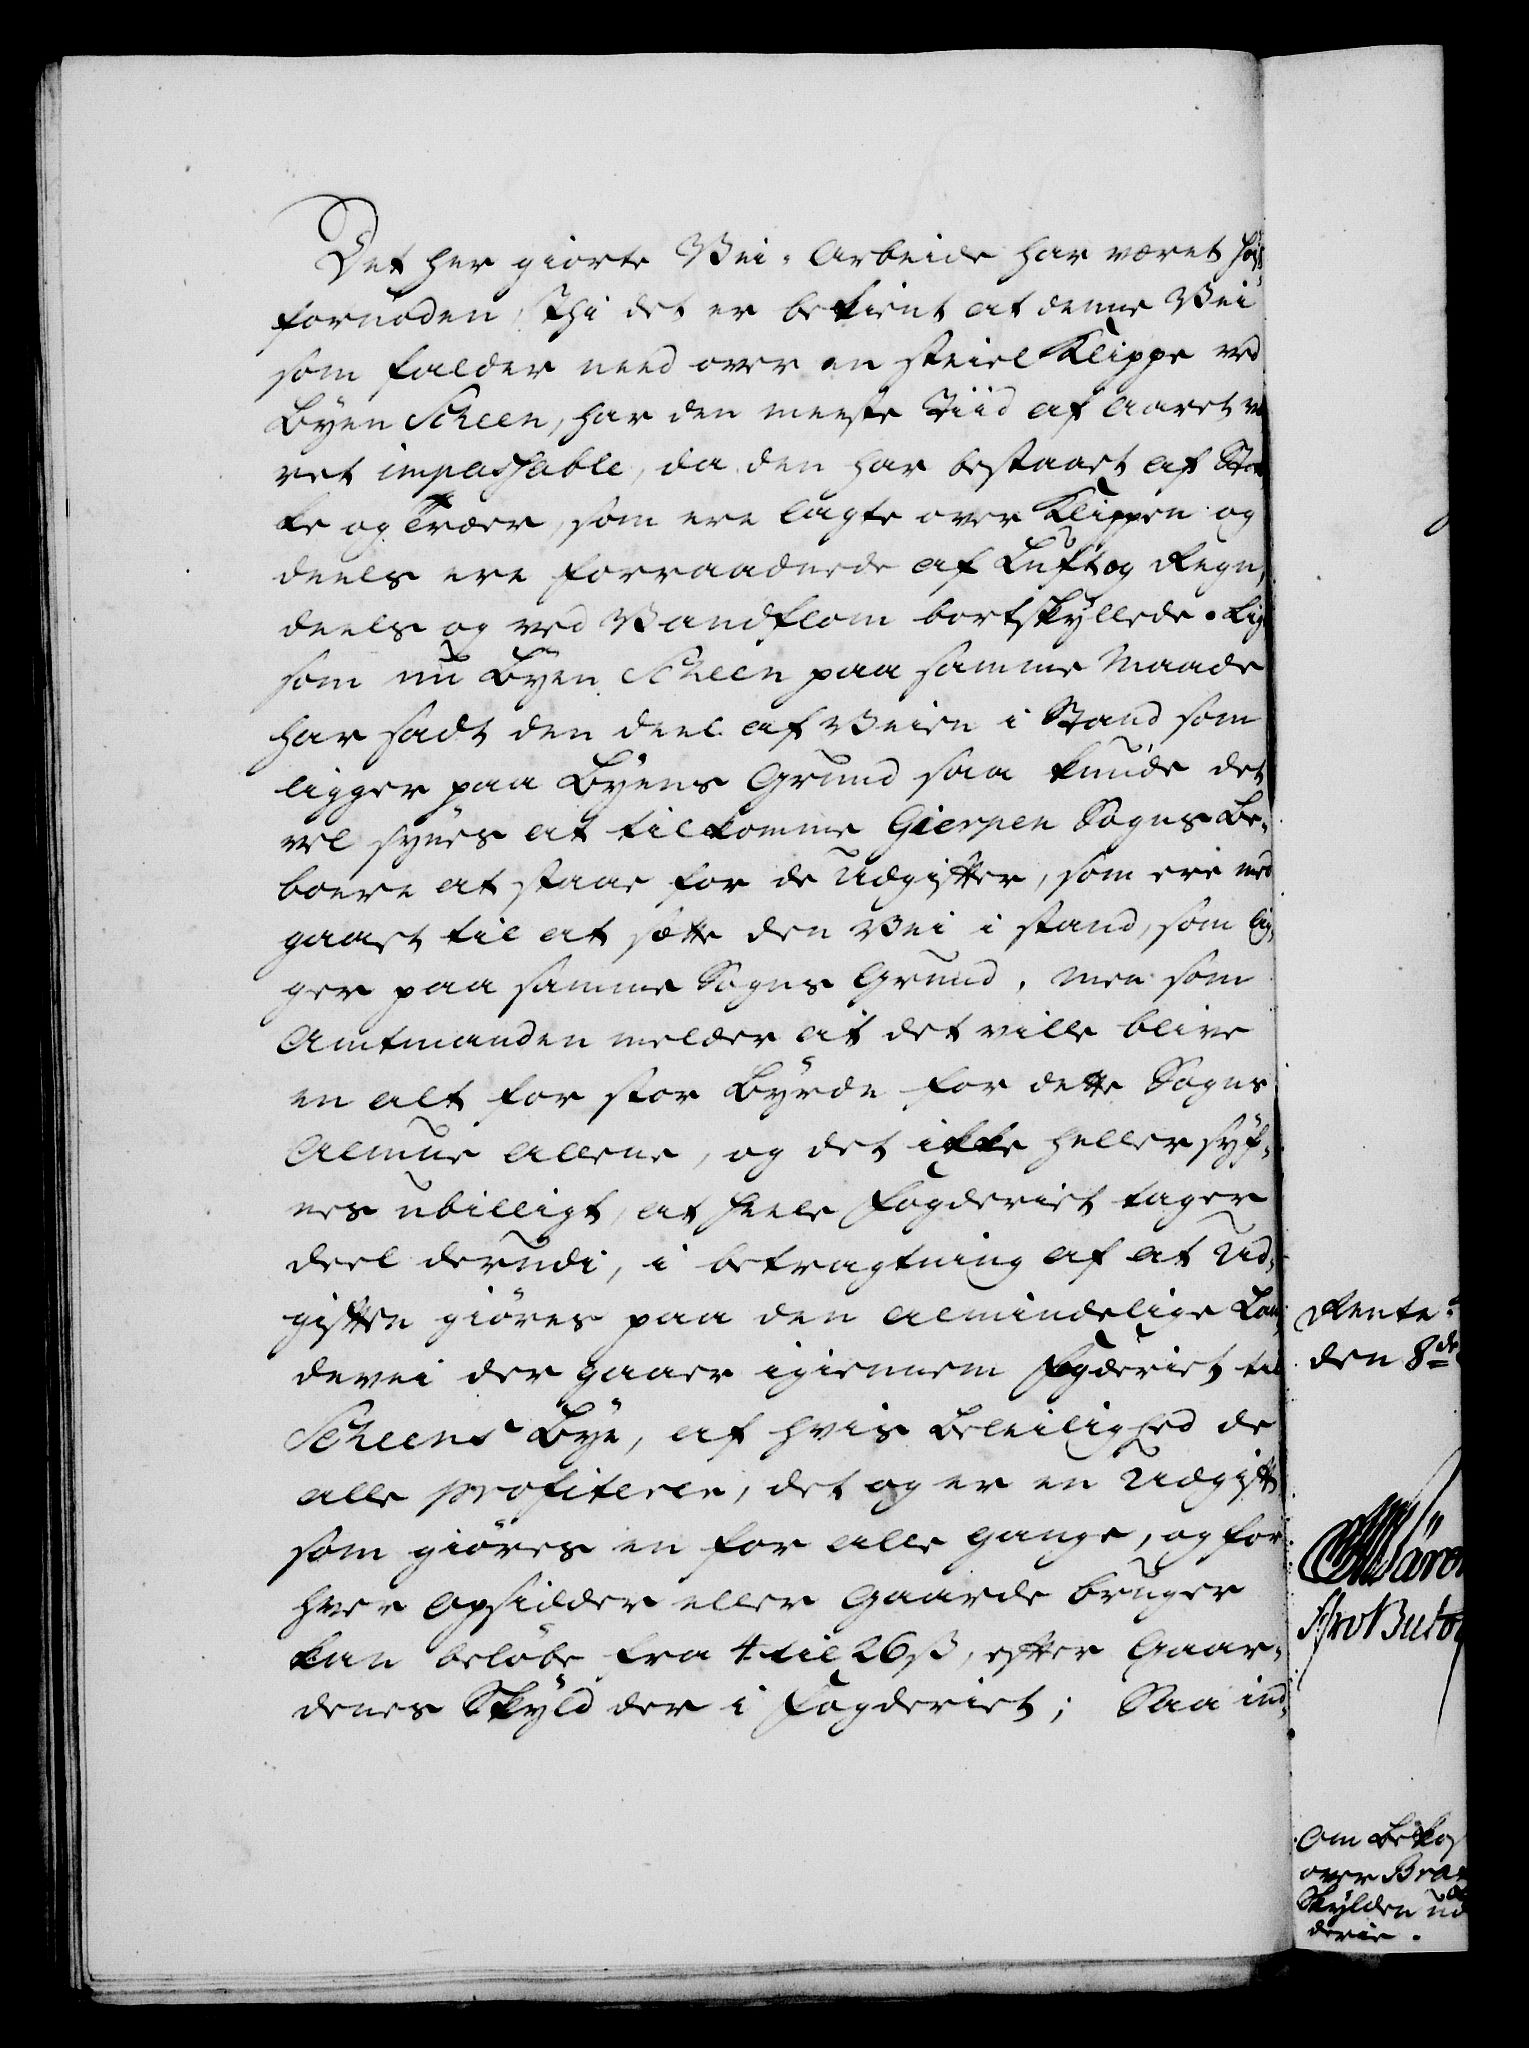 Det her giorte Vei-Arbeide har været høi
fornøden, Thi det er bekient at denne Vei
som falder need over en steiel Klippe ved
Byen Scheen, har den meeste Tiid af Aaret væ
ret impassable, da den har bestaaet af Stok
ke og Træer, som ere lagte over Klippen og
deels ere forraadnede af Luft og Regn,
deels og ved Vandflom bortskyllede. Lig
som nu Byen Scheen paa samme Maade
har sadt den deel af Veien i Stand som
ligger paa Byens Grund saa kunde det
vel synes at tilkomme Gierpen Sogns Be-
boere at staae for de Udgifter, som ere med
gaaet til at sætte den Vei i stand, som lig
ger paa samme Sogns Grund. Men som
Amtmanden melder at det ville blive
en alt for stor Byrde for dette Sogns
Almue allene, og det ikke heller syf-
nes ubilligt, at heele Fogderiet tager
deel derudi, i betragtning af at Ud-
giften giøres paa den almindelige Lan
devei der gaaer igiennem Fogderiet til
Scheens Bye, af hvis Beleilighed de
alle profiterer, det og er en Udgift
som giøres en for alle gange, og for
hver Opsidder eller Gaarde bruger
kan beløbe fra 4 til 26 ß, efter Gaar-
denes Skyld der i Fogderiet; Saa ind-
Rente-
den 8de
Om Bekos
over Bra
Skylden ud
derie.